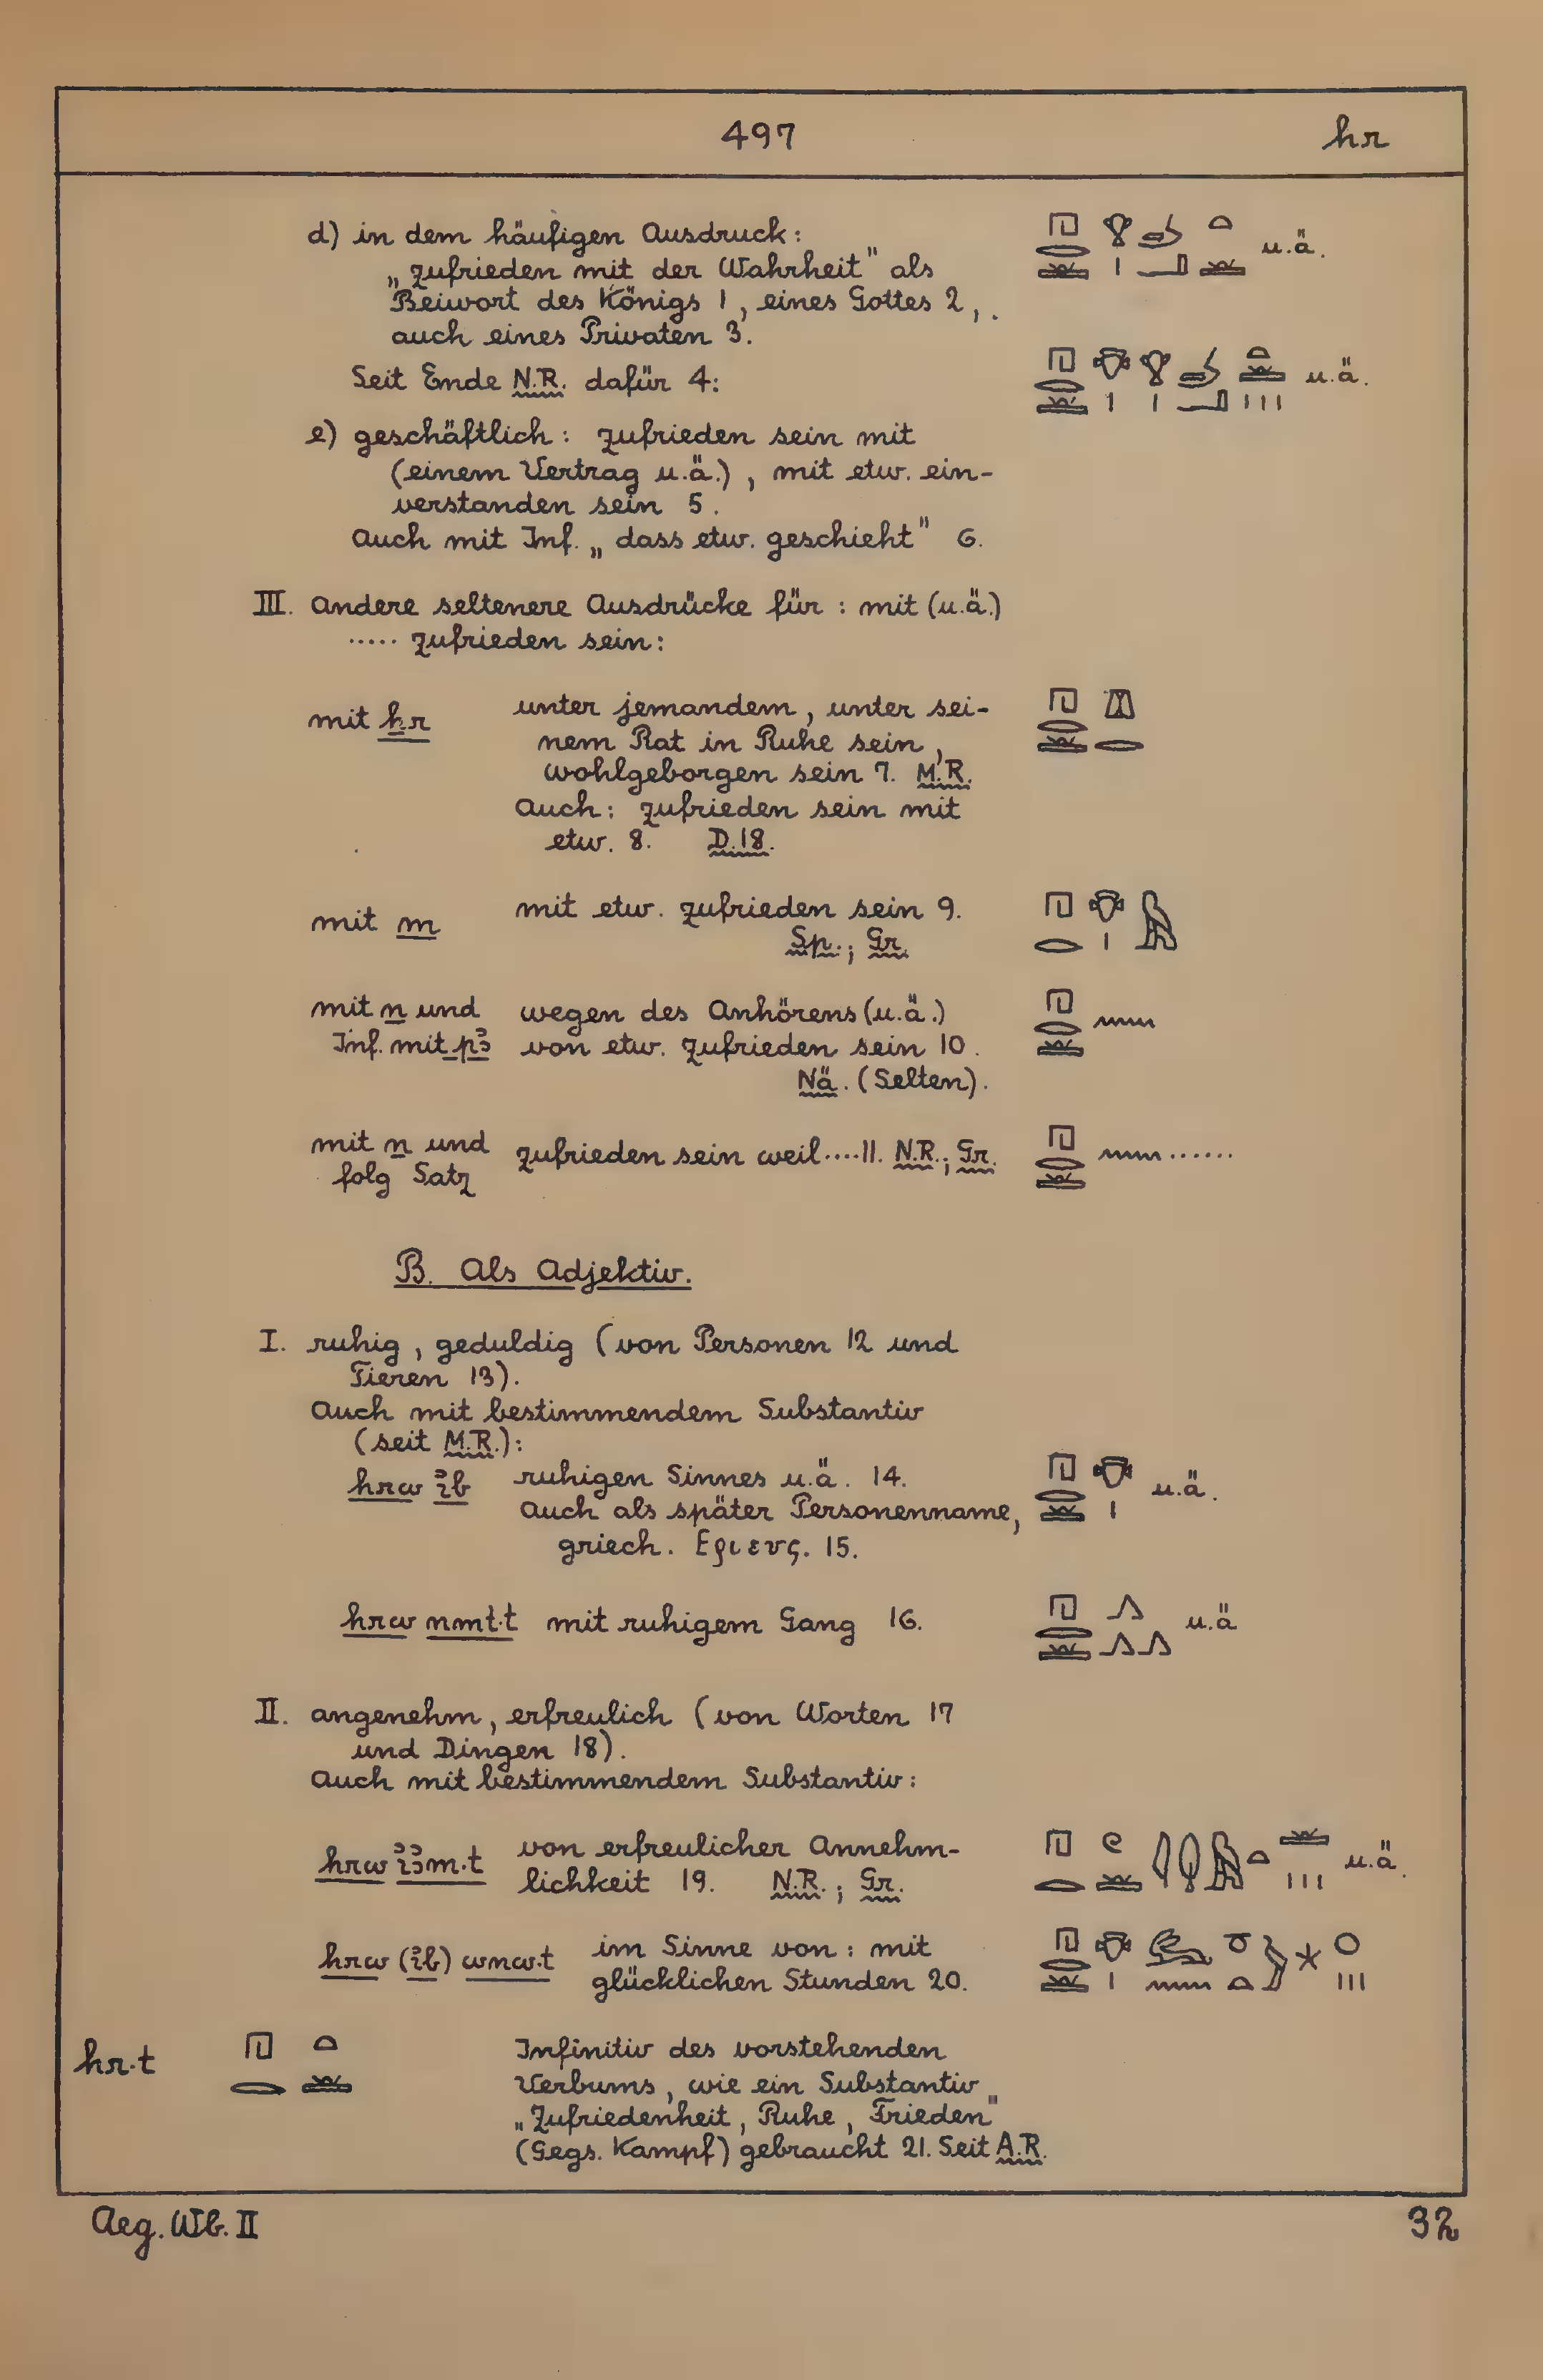 497 hr
d) in dem häufigen Ausdruck:
„zufrieden mit der Wahrheit" als u.ä.
Beiwort des Königs 1, eines Gottes 2,
auch eines Privaten 3.
Seit Ende N.R. dafür 4: u.ä.
e) geschäftlich: zufrieden sein mit
(einem Vertrag u.ä.), mit etw. ein-
verstanden sein 5.
Auch mit Inf. „dass etw. geschieht" 6.
III. Andere seltenere Ausdrücke für: mit (u.ä.)
..... zufrieden sein:
mit ẖr unter jemandem, unter sei-
nem Rat in Ruhe sein,
wohlgeborgen sein 7. M.R.
Auch: zufrieden sein mit
etw. 8. D.18.
mit m mit etw. zufrieden sein 9.
Sp.; Gr.
mit n und wegen des Anhörens (u.ä.)
Inf. mit pꜣ von etw. zufrieden sein 10.
Nä. (Selten).
mit n und zufrieden sein weil....11. N.R.; Gr. ......
folg Satz
B. Als Adjektiv.
I. ruhig, geduldig (von Personen 12 und
Tieren 13).
Auch mit bestimmendem Substantiv
(seit M.R.):
hrw ı͗b ruhigen Sinnes u.ä. 14. u.ä.
Auch als später Personenname,
griech. Εριευς. 15.
hrw nmt·t mit ruhigem Gang 16. u.ä
II. angenehm, erfreulich (von Worten 17
und Dingen 18).
Auch mit bestimmendem Substantiv:
hrw ı͗ꜣm·t von erfreulicher Annehm- u.ä.
lichkeit 19. N.R.; Gr.
hrw (ı͗b) wnw·t im Sinne von: mit
glücklichen Stunden 20.
hr·t Infinitiv des vorstehenden
Verbums, wie ein Substantiv
„Zufriedenheit, Ruhe, Frieden"
(Gegs. Kampf) gebraucht 21. Seit A.R.
Aeg. Wb. II 32